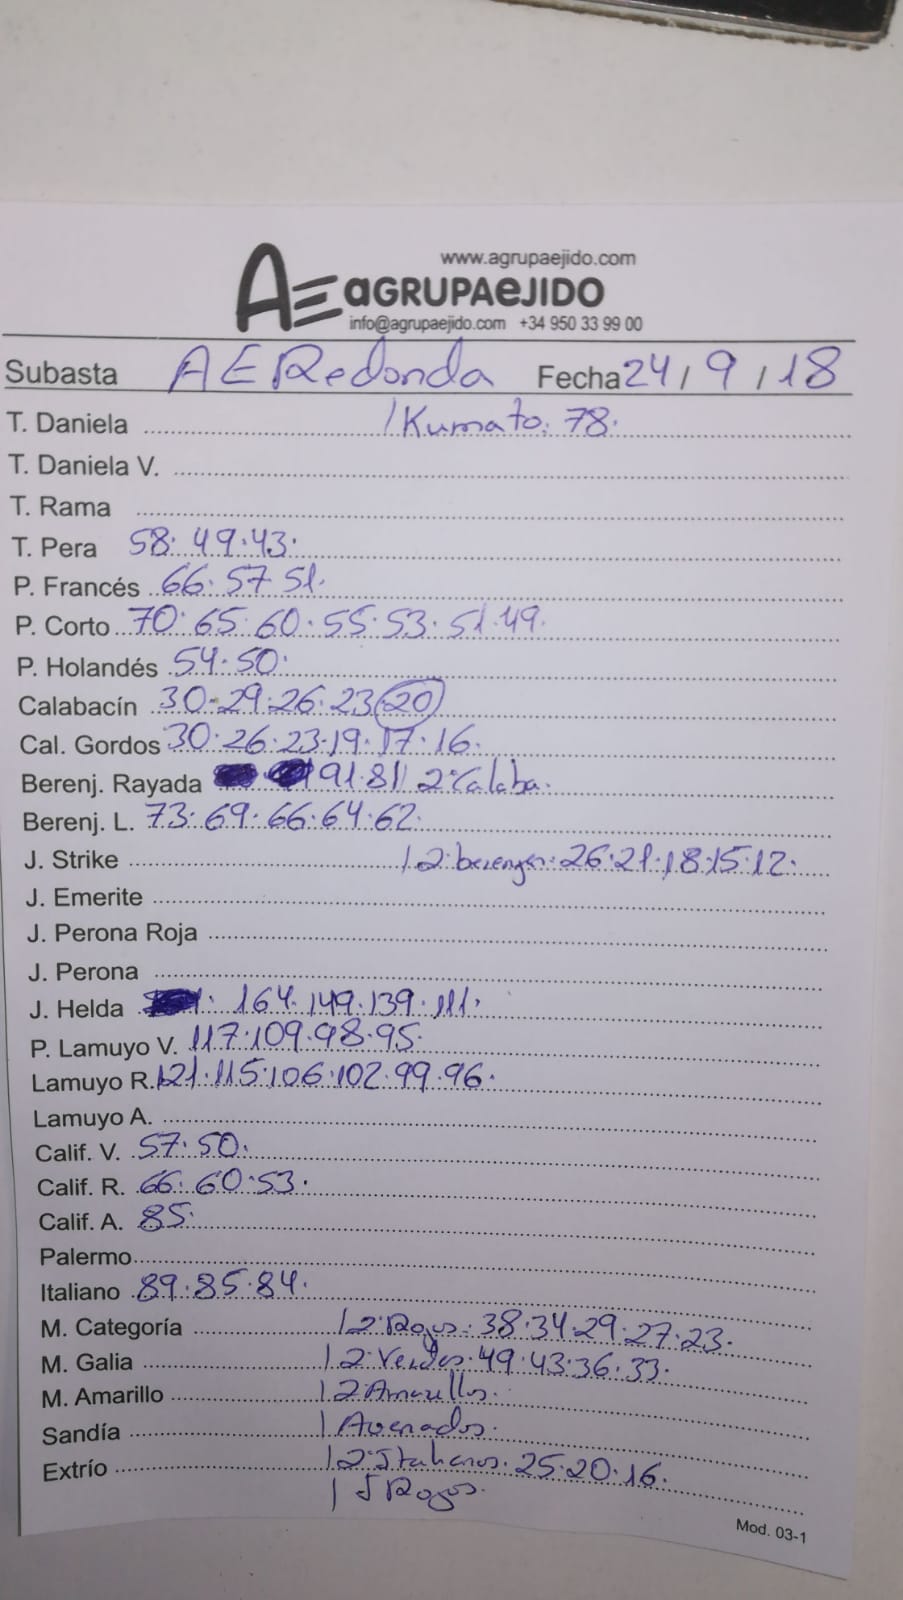 www.agrupaejido.com
AE aGRUPAeJIDO
info@agrupaejido.com +34 950 33 99 00
Subasta AE Redonda Fecha 24 / 9 / 18
T. Daniela / Kumato. 78.
T. Daniela V.
T. Rama
T. Pera 58. 49. 43.
P. Francés 66. 57 51.
P. Corto 70. 65. 60. 55. 53. 51. 49.
P. Holandés 54. 50.
Calabacín 30. 29. 26. 23 20
Cal. Gordos 30. 26. 23. 19. 17. 16.
Berenj. Rayada 91. 81 / 2ª Calaba.
Berenj. L. 73. 69. 66. 64. 62.
J. Strike / 2ª berenjen. 26. 21. 18. 15. 12.
J. Emerite
J. Perona Roja
J. Perona
J. Helda 164. 149. 139. 111.
P. Lamuyo V. 117. 109. 98. 95.
Lamuyo R. 121. 115. 106. 102. 99. 96.
Lamuyo A.
Calif. V. 57. 50.
Calif. R. 66. 60. 53.
Calif. A. 85.
Palermo
Italiano 89. 85. 84.
M. Categoría / 2ª Rojos. 38. 34. 29. 27. 23.
M. Galia / 2ª Verdes. 49. 43. 36. 33.
M. Amarillo / 2ª Amarillos.
Sandía / Asenados.
Extrío / 2ª Italianos. 25. 20. 16.
/ J Rojos.
Mod. 03-1